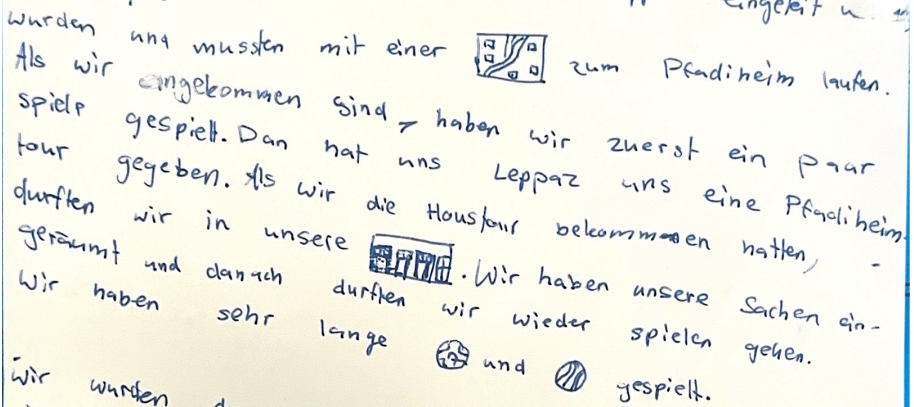 eingeteilt u.
wurden und mussten mit einer zum Pfadiheim laufen.
Als wir angekommen sind, haben wir zuerst ein paar
spiele gespielt. Dan hat uns Leppaz uns eine Pfadiheim-
tour gegeben. Als wir die Houstour bekommen hatten,
durften wir in unsere . Wir haben unsere Sachen ein-
geräumt und danach durften wir wieder spielen gehen.
Wir haben sehr lange und gespielt.
Wir wurden